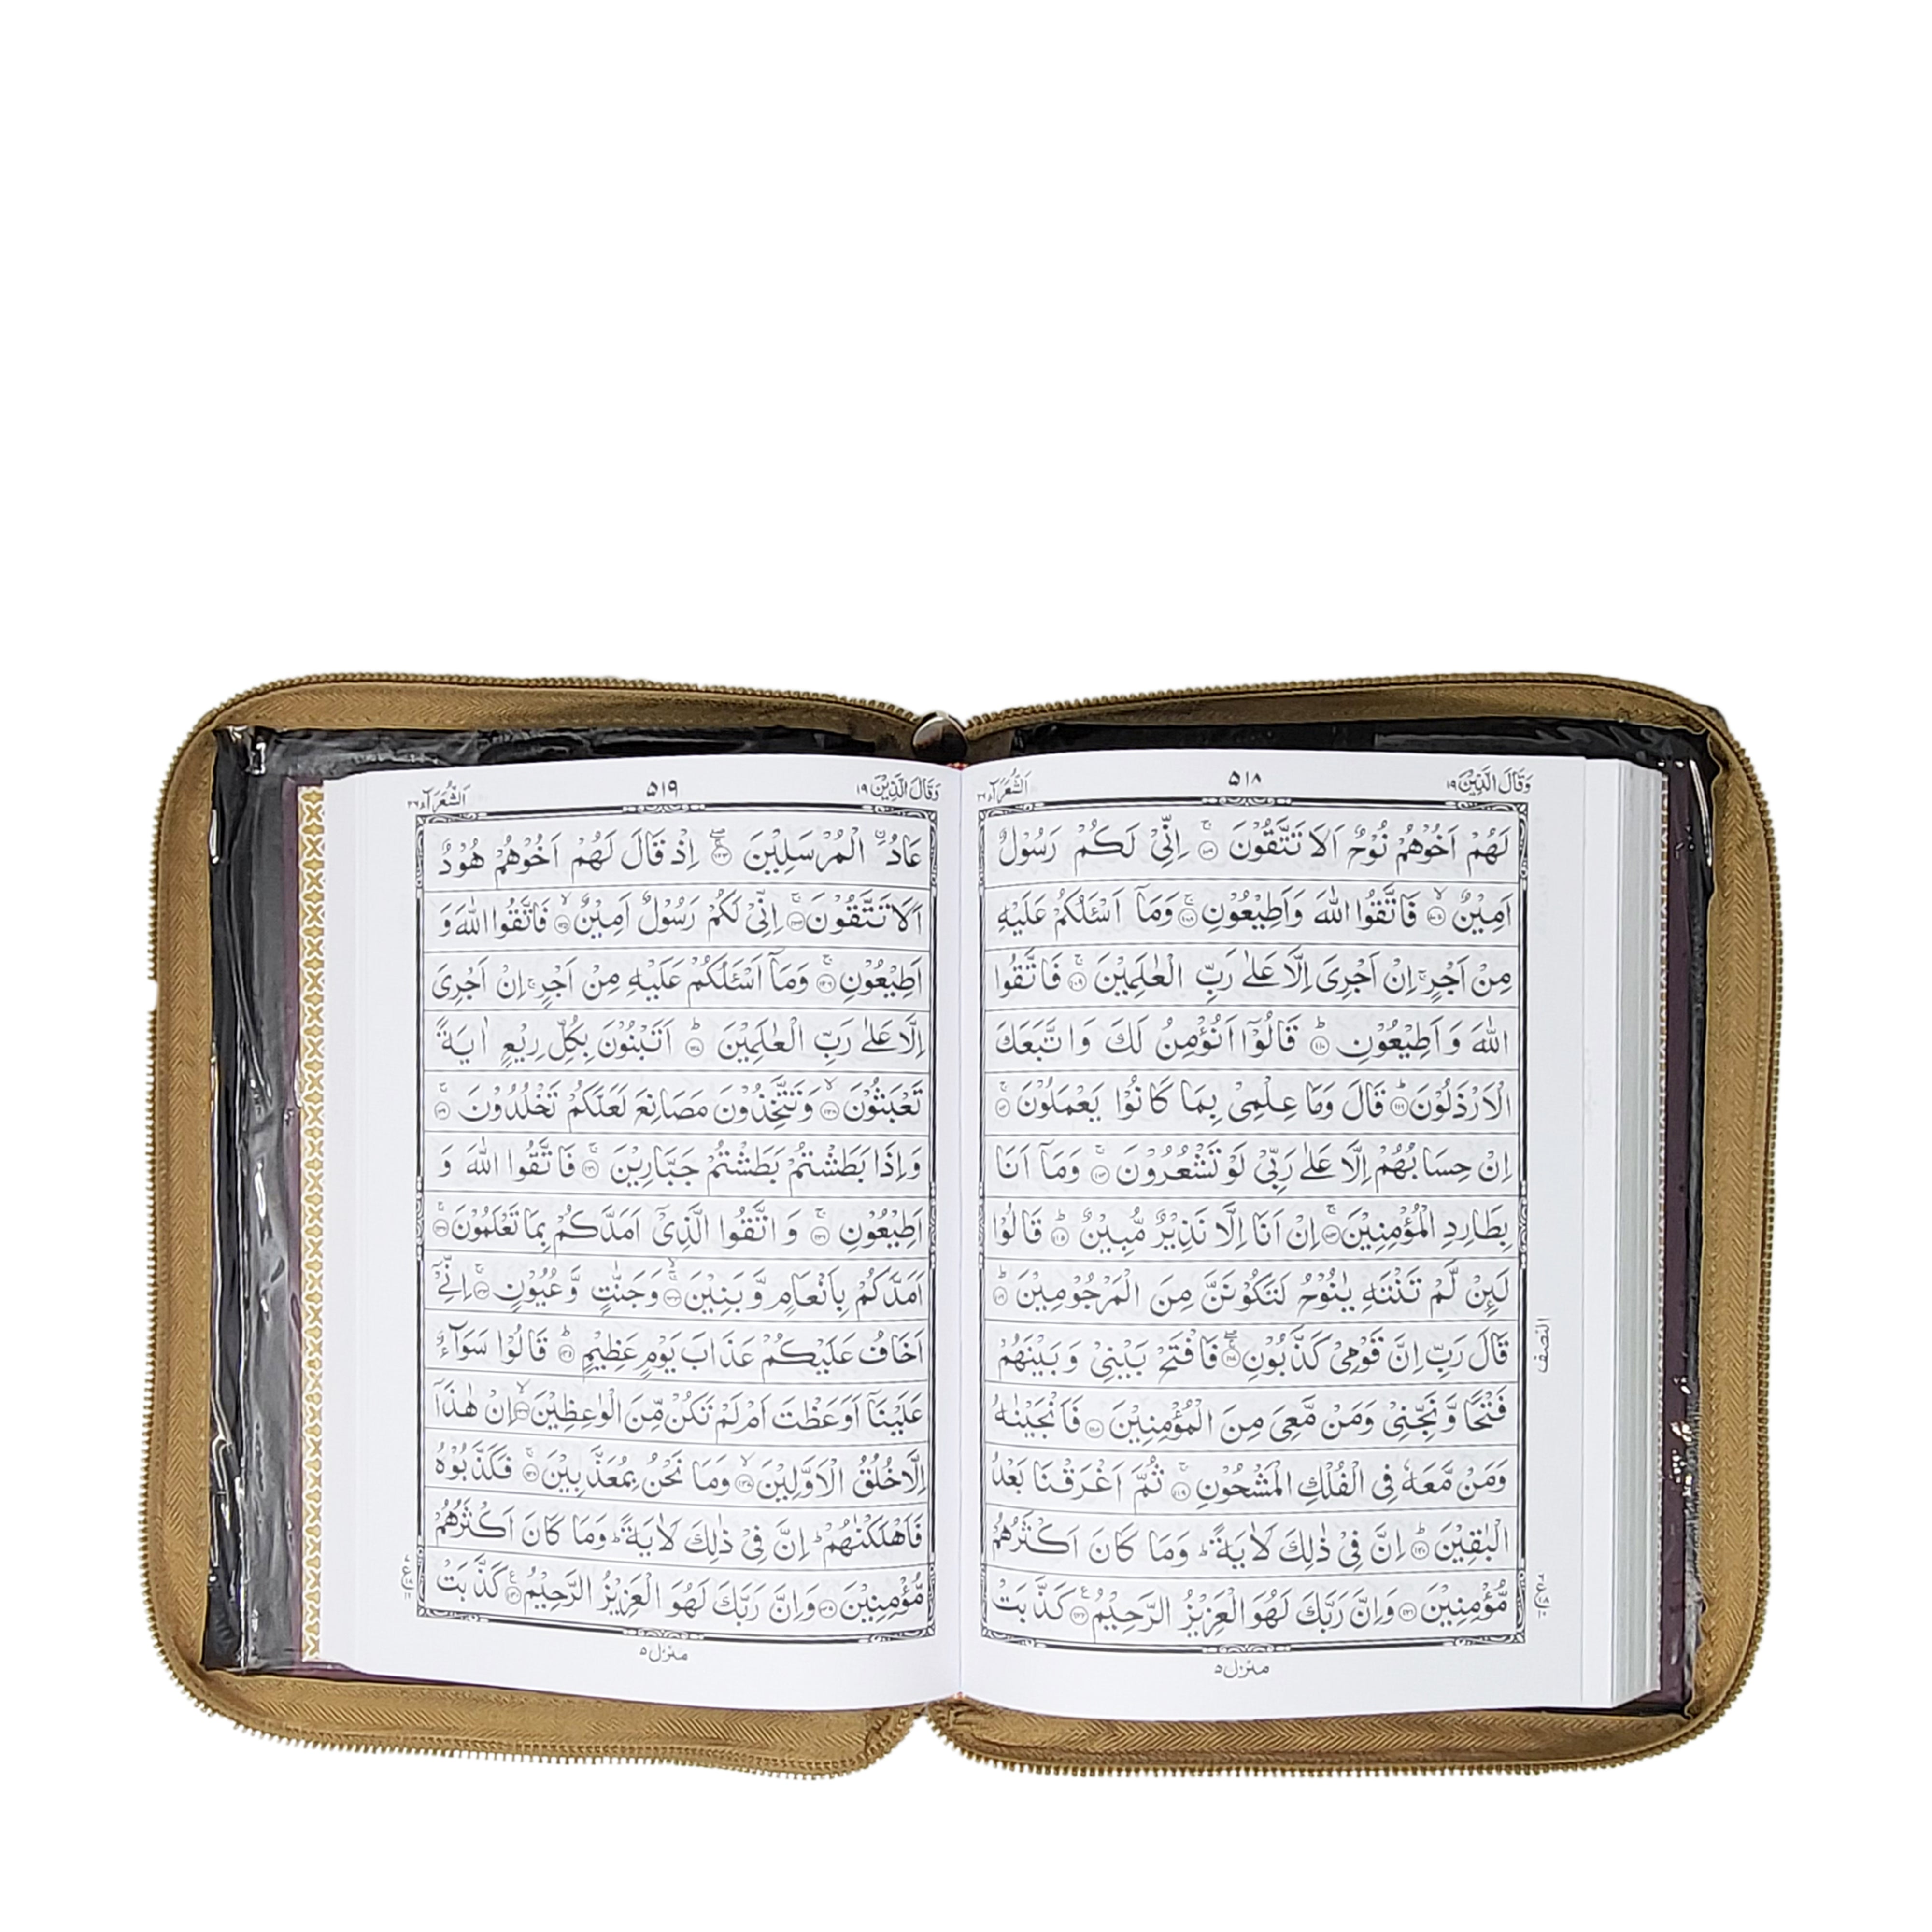 وَقَالَ الَّذِيْنَ ١٩
٥١٨
اَلشُّعَرَآء ٢٦
لَهُمْ اَخُوْهُمْ نُوْحٌ اَلَا تَتَّقُوْنَ ۚ‏ ﴿١٠٦﴾ اِنِّىْ لَكُمْ رَسُوْلٌ
اَمِيْنٌ ۙ‏ ﴿١٠٧﴾ فَاتَّقُوا اللّٰهَ وَاَطِيْعُوْنِ ۚ‏ ﴿١٠٨﴾ وَمَآ اَسْئَلُكُمْ عَلَيْهِ
مِنْ اَجْرٍ ۚ اِنْ اَجْرِىَ اِلَّا عَلٰى رَبِّ الْعٰلَمِيْنَ ۚ‏ ﴿١٠٩﴾ فَاتَّقُوا
اللّٰهَ وَ اَطِيْعُوْنِ ؕ‏ ﴿١١٠﴾ قَالُوْٓا اَنُؤْمِنُ لَكَ وَ اتَّبَعَكَ
الْاَرْذَلُوْنَ ؕ‏ ﴿١١١﴾ قَالَ وَمَا عِلْمِىْ بِمَا كَانُوْا يَعْمَلُوْنَ ۚ‏ ﴿١١٢﴾
اِنْ حِسَابُهُمْ اِلَّا عَلٰى رَبِّىْ لَوْ تَشْعُرُوْنَ ۚ‏ ﴿١١٣﴾ وَمَآ اَنَا
بِطَارِدِ الْمُؤْمِنِيْنَ ۚ‏ ﴿١١٤﴾ اِنْ اَنَا اِلَّا نَذِيْرٌ مُّبِيْنٌ ؕ‏ ﴿١١٥﴾ قَالُوْا
لَئِنْ لَّمْ تَنْتَهِ يٰنُوْحُ لَتَكُوْنَنَّ مِنَ الْمَرْجُوْمِيْنَ ؕ‏ ﴿١١٦﴾
قَالَ رَبِّ اِنَّ قَوْمِىْ كَذَّبُوْنِ ۖۚ‏ ﴿١١٧﴾ فَافْتَحْ بَيْنِىْ وَ بَيْنَهُمْ
النصف
فَتْحًا وَّ نَجِّنِىْ وَمَنْ مَّعِىَ مِنَ الْمُؤْمِنِيْنَ ﴿١١٨﴾ فَاَنْجَيْنٰهُ
وَمَنْ مَّعَهٗ فِى الْفُلْكِ الْمَشْحُوْنِ ۚ‏ ﴿١١٩﴾ ثُمَّ اَغْرَقْنَا بَعْدُ
الْبٰقِيْنَ ؕ‏ ﴿١٢٠﴾ اِنَّ فِىْ ذٰلِكَ لَاٰيَةً ؕ وَمَا كَانَ اَكْثَرُهُمْ
مُّؤْمِنِيْنَ ﴿١٢١﴾ وَاِنَّ رَبَّكَ لَهُوَ الْعَزِيْزُ الرَّحِيْمُ ﴿١٢٢﴾ كَذَّبَتْ
منزل ٥
وَقَالَ الَّذِيْنَ ١٩
٥١٩
اَلشُّعَرَآء ٢٦
عَادُ ۨ الْمُرْسَلِيْنَ ۖۚ‏ ﴿١٢٣﴾ اِذْ قَالَ لَهُمْ اَخُوْهُمْ هُوْدٌ
اَلَا تَتَّقُوْنَ ۚ‏ ﴿١٢٤﴾ اِنِّىْ لَكُمْ رَسُوْلٌ اَمِيْنٌ ۙ‏ ﴿١٢٥﴾ فَاتَّقُوا اللّٰهَ وَ
اَطِيْعُوْنِ ۚ‏ ﴿١٢٦﴾ وَمَآ اَسْئَلُكُمْ عَلَيْهِ مِنْ اَجْرٍ ۚ اِنْ اَجْرِىَ
اِلَّا عَلٰى رَبِّ الْعٰلَمِيْنَ ؕ‏ ﴿١٢٧﴾ اَتَبْنُوْنَ بِكُلِّ رِيْعٍ اٰيَةً
تَعْبَثُوْنَ ۙ‏ ﴿١٢٨﴾ وَتَتَّخِذُوْنَ مَصَانِعَ لَعَلَّكُمْ تَخْلُدُوْنَ ۚ‏ ﴿١٢٩﴾
وَاِذَا بَطَشْتُمْ بَطَشْتُمْ جَبَّارِيْنَ ۚ‏ ﴿١٣٠﴾ فَاتَّقُوا اللّٰهَ وَ
اَطِيْعُوْنِ ۚ‏ ﴿١٣١﴾ وَ اتَّقُوا الَّذِىْٓ اَمَدَّكُمْ بِمَا تَعْلَمُوْنَ ۚ‏ ﴿١٣٢﴾
اَمَدَّكُمْ بِاَنْعَامٍ وَّ بَنِيْنَ ۙۚ‏ ﴿١٣٣﴾ وَجَنّٰتٍ وَّ عُيُوْنٍ ۚ‏ ﴿١٣٤﴾ اِنِّىْٓ
اَخَافُ عَلَيْكُمْ عَذَابَ يَوْمٍ عَظِيْمٍ ؕ‏ ﴿١٣٥﴾ قَالُوْا سَوَآءٌ
عَلَيْنَآ اَوَعَظْتَ اَمْ لَمْ تَكُنْ مِّنَ الْوٰعِظِيْنَ ۙ‏ ﴿١٣٦﴾ اِنْ هٰذَآ
اِلَّا خُلُقُ الْاَوَّلِيْنَ ۙ‏ ﴿١٣٧﴾ وَمَا نَحْنُ بِمُعَذَّبِيْنَ ۚ‏ ﴿١٣٨﴾ فَكَذَّبُوْهُ
فَاَهْلَكْنٰهُمْ ؕ اِنَّ فِىْ ذٰلِكَ لَاٰيَةً ؕ وَمَا كَانَ اَكْثَرُهُمْ
مُّؤْمِنِيْنَ ﴿١٣٩﴾ وَاِنَّ رَبَّكَ لَهُوَ الْعَزِيْزُ الرَّحِيْمُ ﴿١٤٠﴾ كَذَّبَتْ
منزل ٥